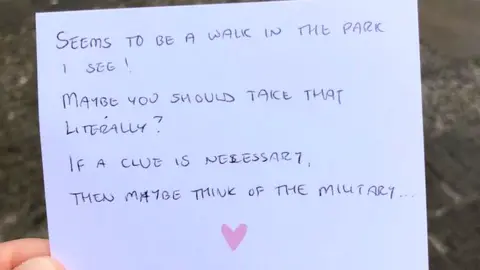 SEEMS TO BE A WALK IN THE PARK
I SEE!
MAYBE YOU SHOULD TAKE THAT
LITERALLY?
IF A CLUE IS NECESSARY,
THEN MAYBE THINK OF THE MILITARY...